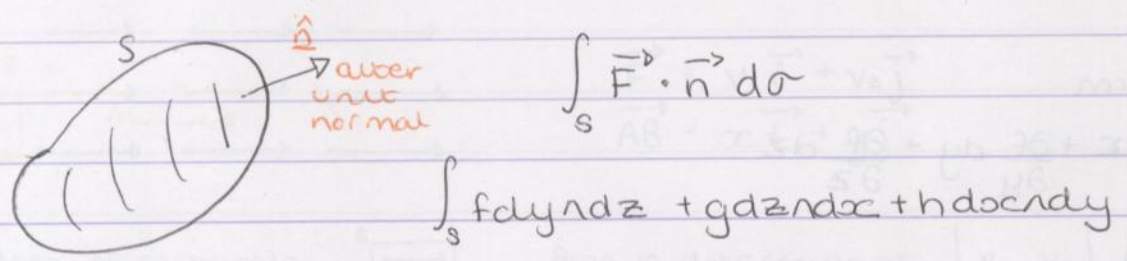 S
n̂
outer
unit
normal
∫_S F⃗ · n⃗ dσ
∫_S fdy∧dz + gdz∧dx + hdx∧dy